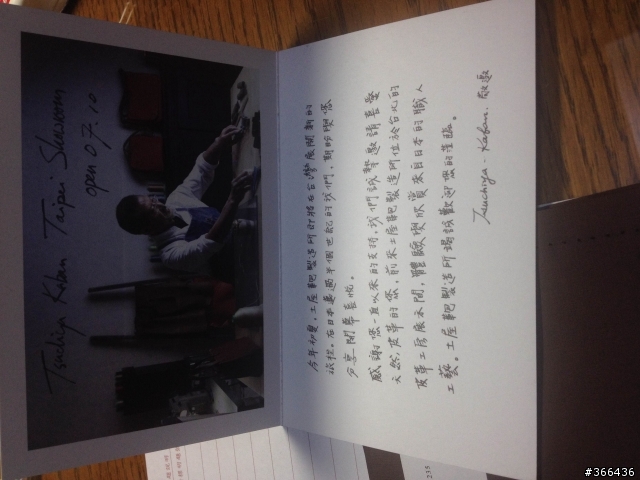 Tsuchiya Kaban Taipei Showroom
open 07.10
今年初夏，土屋鞄製造所即將在台灣展開新的
旅程。在日本邁過半個世紀的我們，期盼與您
分享開幕喜悅。
感謝您一直以來的支持，我們誠摯邀請喜愛
天然皮革的您，前來土屋鞄製造所位於台北的
皮革工房展示間，體驗與欣賞來自日本的職人
工藝。土屋鞄製造所竭誠歡迎您的蒞臨。
Tsuchiya-Kaban. 敬邀
235
#366436